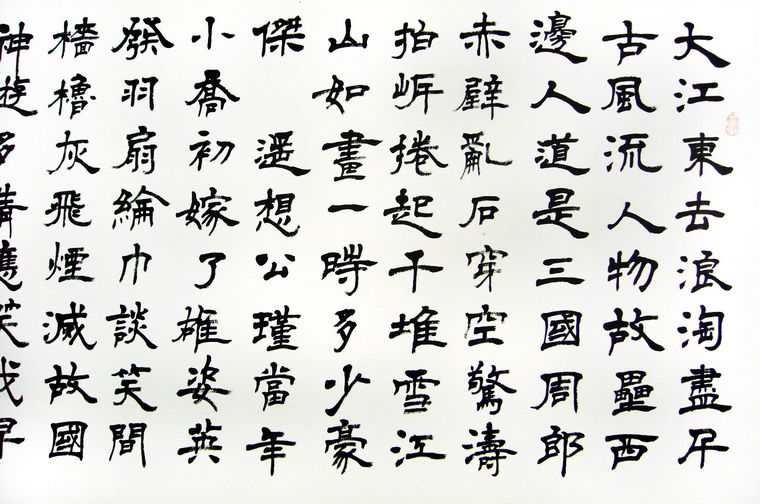 大江東去浪淘盡千
古風流人物故壘西
邊人道是三國周郎
赤壁亂石穿空驚濤
拍岸捲起千堆雪江
山如畫一時多少豪
傑 遥想公瑾當年
小喬初嫁了雄姿英
發羽扇綸巾談笑間
檣櫓灰飛煙滅故國
神遊多情應笑我早